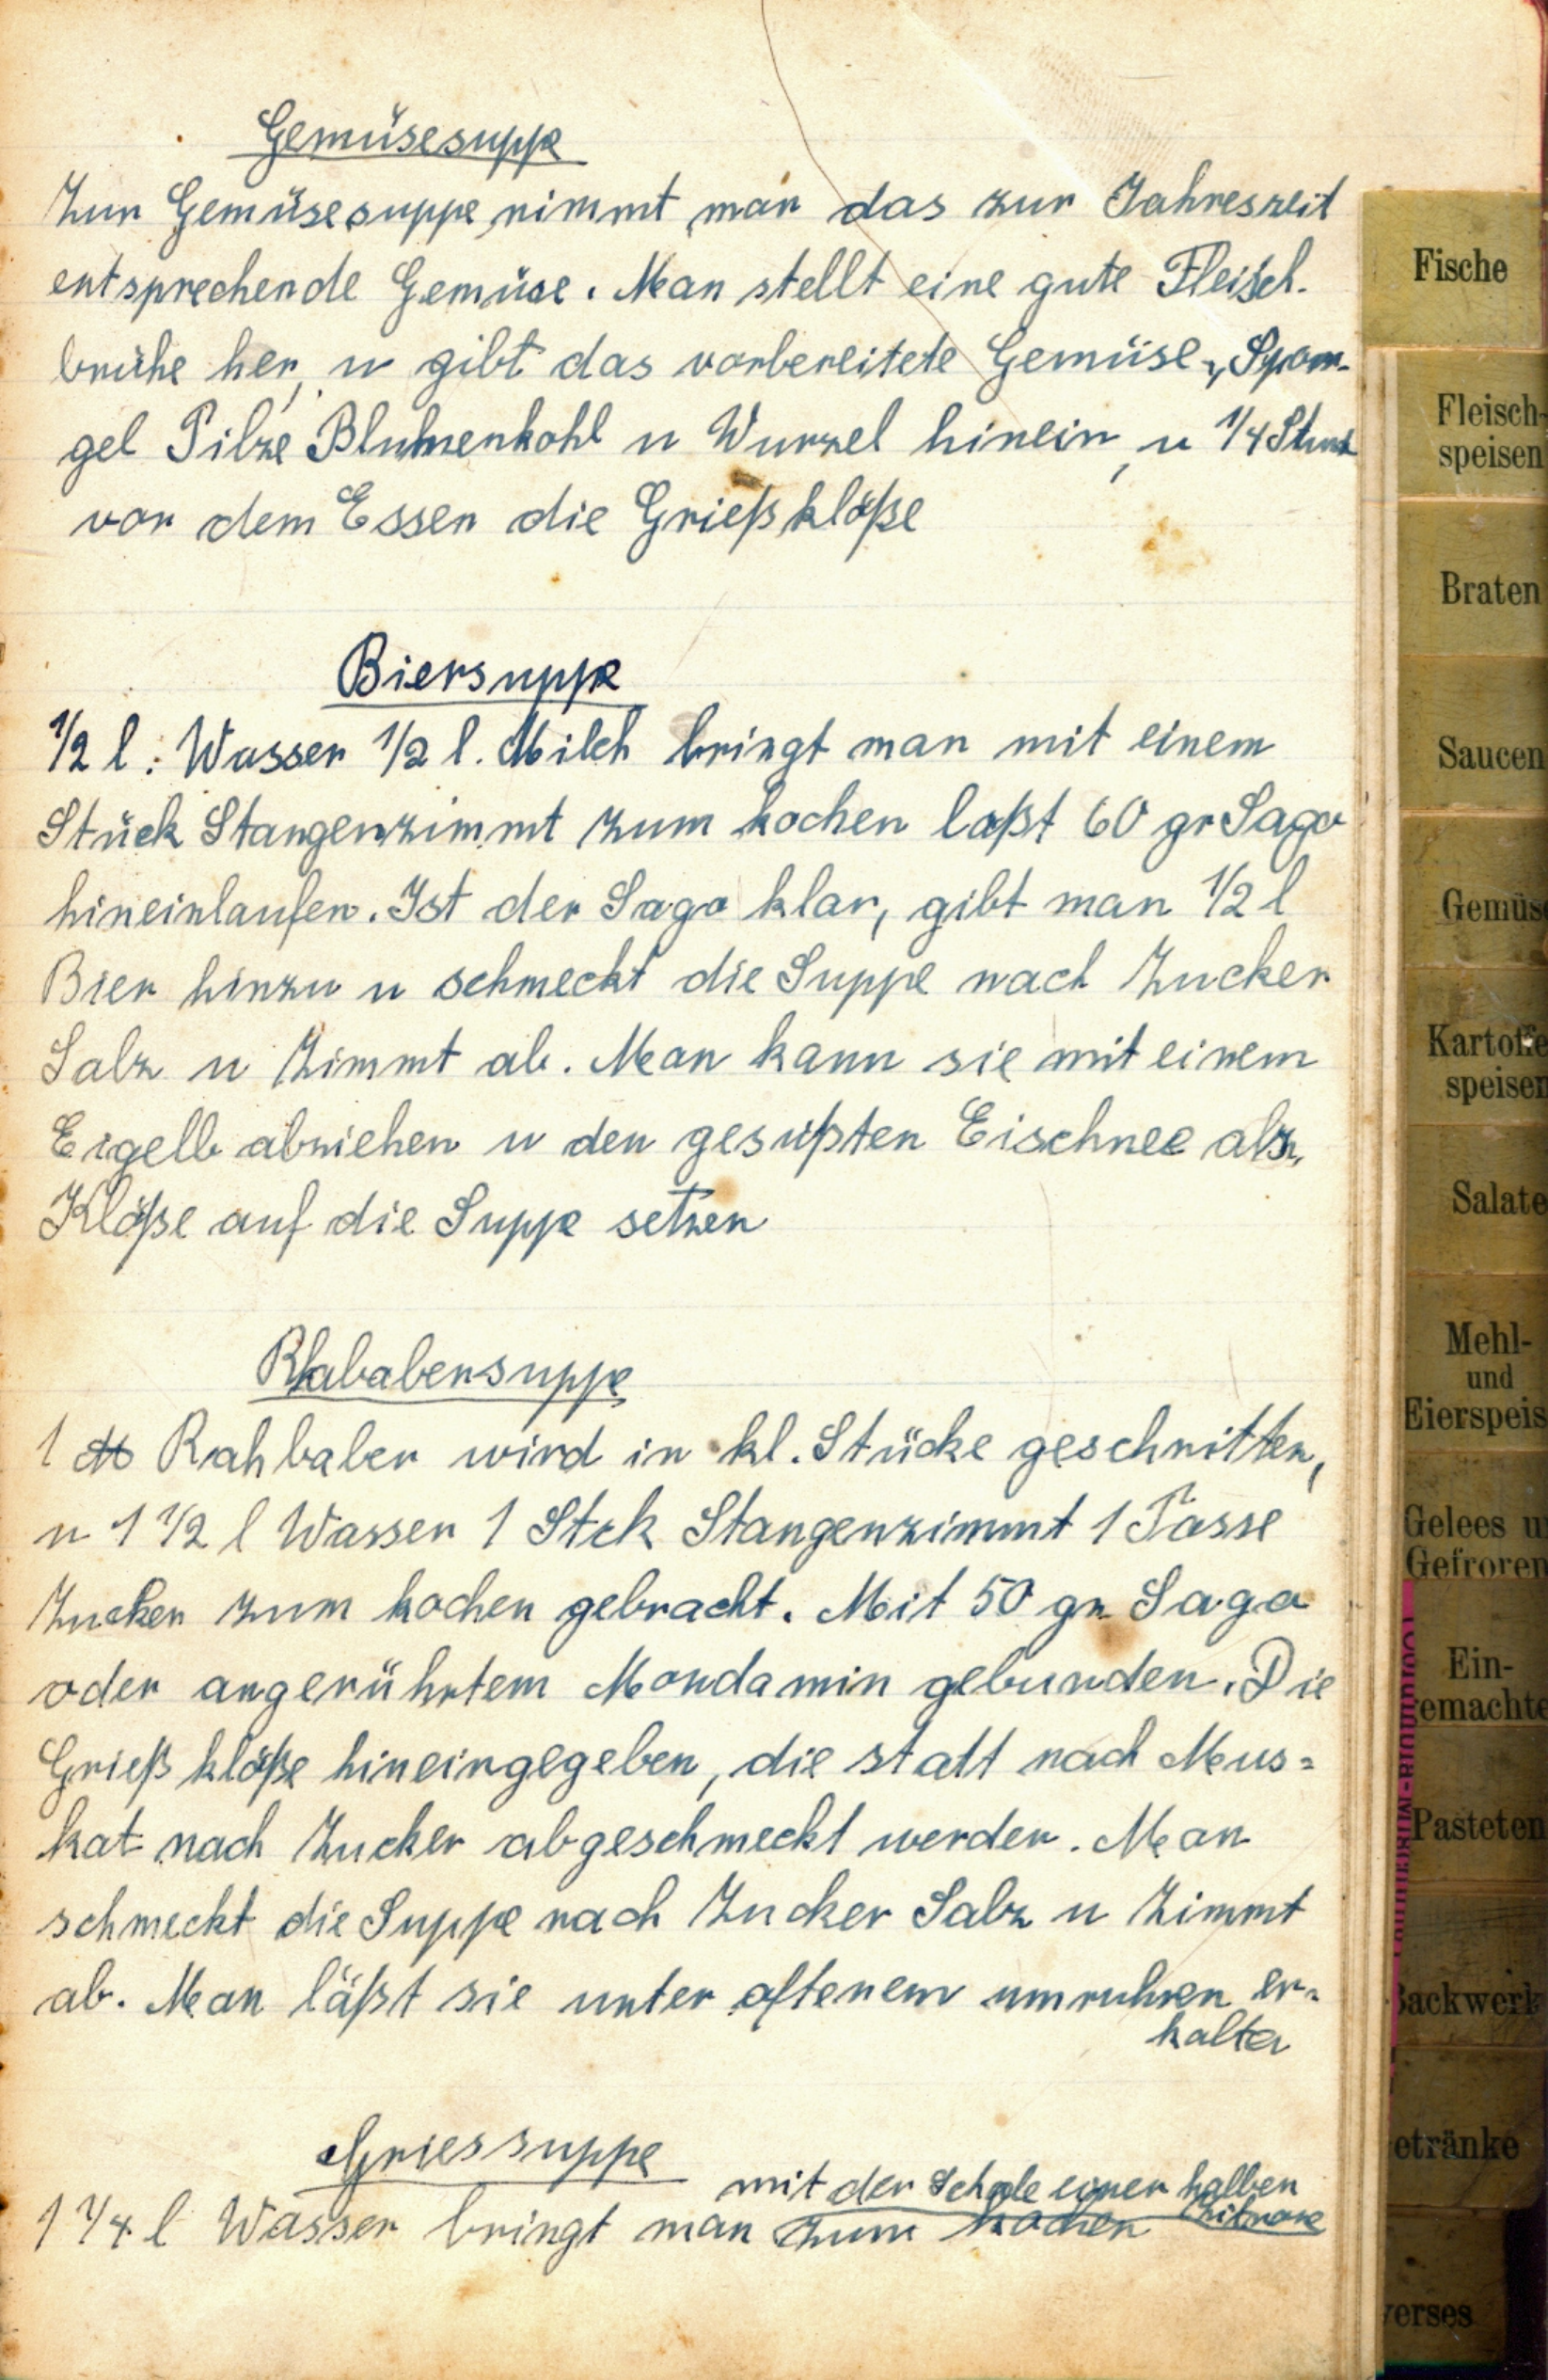 Gemüsesuppe
Zur Gemüsesuppe nimmt man das zur Jahreszeit
entsprechende Gemüse. Man stellt eine gute Fleisch-
brühe her, u gibt das vorbereitete Gemüse, Spar-
gel Pilze Blumenkohl u Wurzel hinein, u 1/4 Stund
vor dem Essen die Grießklöße
Biersuppe
1/2 l. Wasser 1/2 l. Milch bringt man mit einem
Stück Stangenzimmt zum kochen laßt 60 gr Sago
hineinlaufen. Ist der Sago klar, gibt man 1/2 l
Bier hinzu u schmeckt die Suppe nach Zucker
Salz u Zimmt ab. Man kann sie mit einem
Eigelb abziehen u den gesüßten Eischnee als
Klöße auf die Suppe setzen
Rhababersuppe
1 ℔ Rahbaber wird in kl. Stücke geschnitten,
u 1 1/2 l Wasser 1 Stck Stangenzimmt 1 Tasse
Zucker zum kochen gebracht. Mit 50 gr Sago
oder angerührtem Mondamin gebunden. Die
Grießklöße hineingegeben, die statt nach Mus=
kat nach Zucker abgeschmeckt werden. Man
schmeckt die Suppe nach Zucker Salz u Zimmt
ab. Man läßt sie unter öftenem umruhren er=
kalten
Griessuppe
mit der Schale einer halben
Zitrone
1 1/4 l Wasser bringt man zum kochen
Fische
Fleisch-
speisen
Braten
Saucen
Gemüse
Kartoffe
speisen
Salate
Mehl-
und
Eierspeis
Gelees u
Gefroren
Ein-
gemachte
Pasteten
Backwerk
etränke
verses